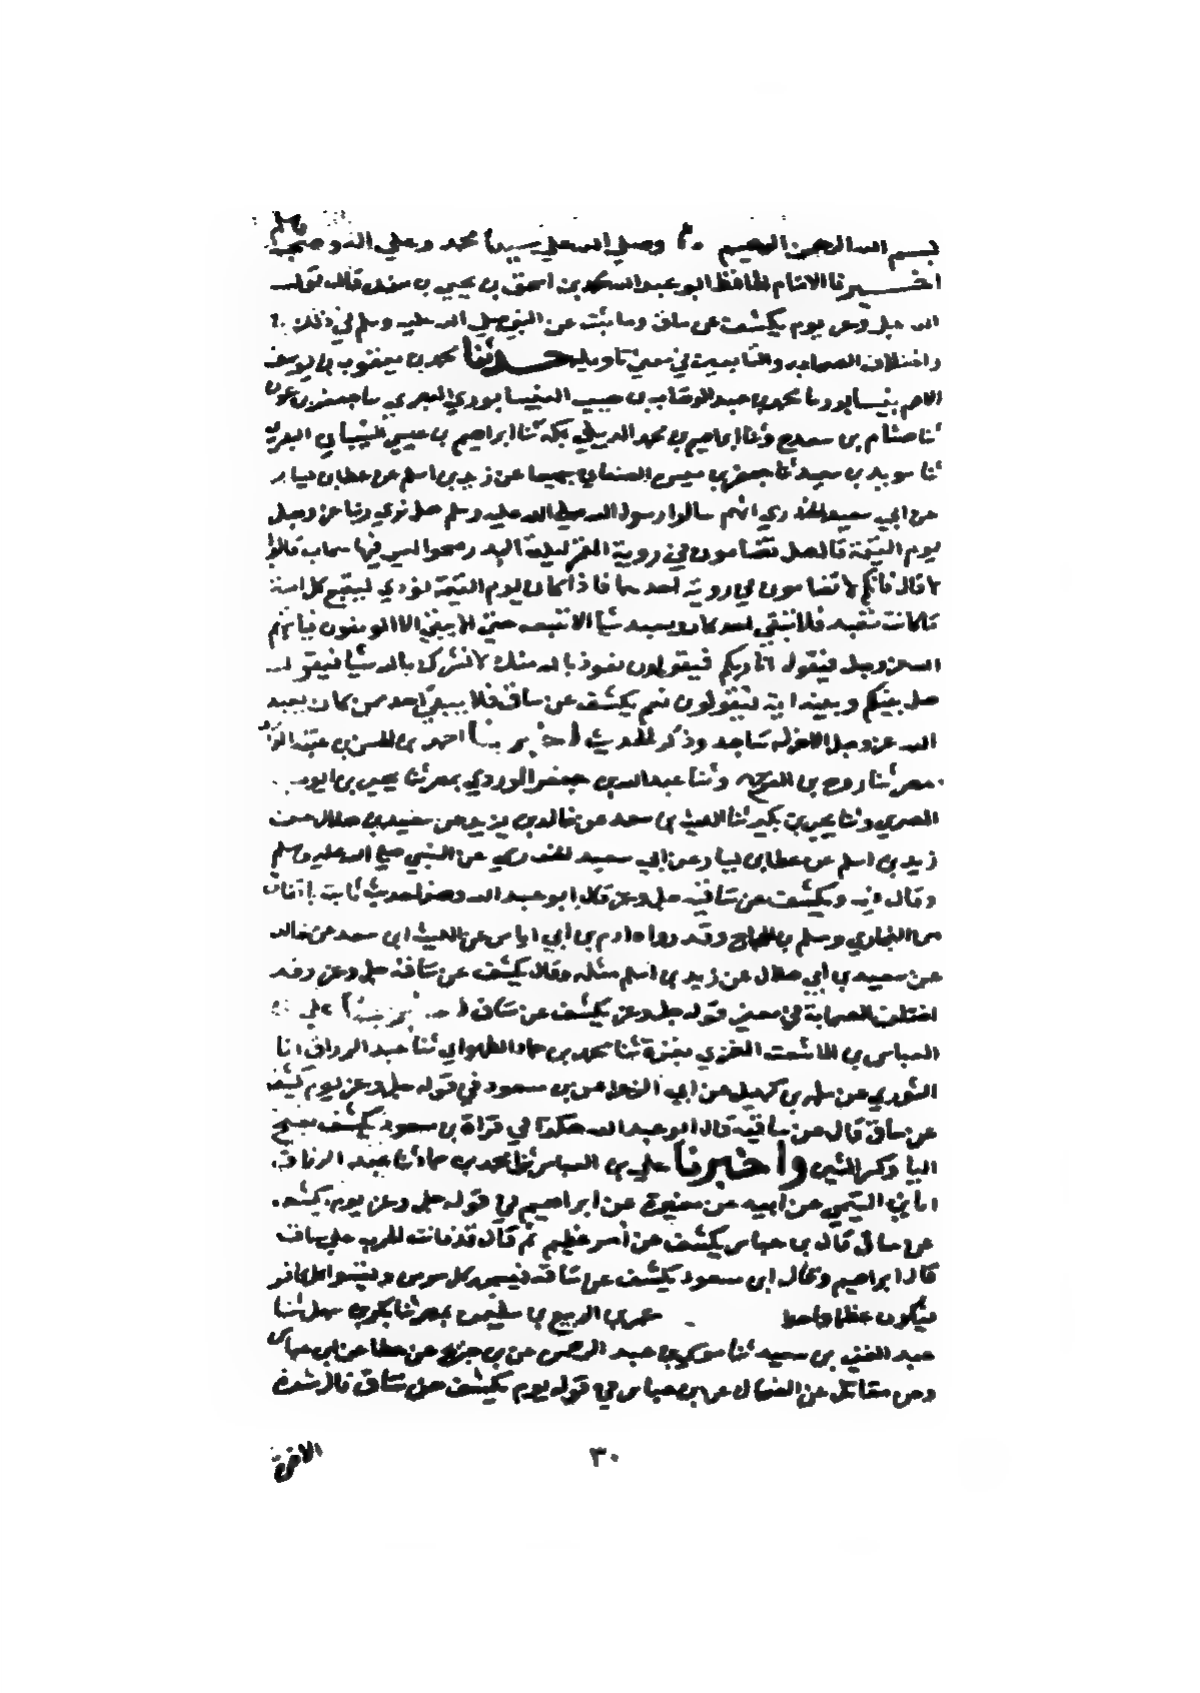 بسم الله الرحمن الرحيم وصلى الله على سيدنا محمد وعلى اله وصحبه وسلم
اخبرنا الامام الحافظ ابو عبد الله محمد بن اسحق بن يحيى بن منده قال قول
الله جل وعز يوم يكشف عن ساق وما يثبت عن النبي صلى الله عليه وسلم في ذلك
واختلاف الصحابه والتابعين في معنى تاويله حدثنا محمد بن يعقوب بن يوسف
الاصم بنيسابور ثنا محمد بن عبد الوهاب بن حبيب النيسابوري العبدي ثنا جعفر بن عون
ثنا هشام بن سعد ح وثنا ابراهيم بن محمد الديبلي بمكة ثنا ابراهيم بن عيسى الشيباني البصري
ثنا سويد بن سعيد ثنا حفص بن ميسرة الصنعاني جميعا عن زيد بن اسلم عن عطا بن يسار
عن ابي سعيد الخدري انهم سالوا رسول الله صلى الله عليه وسلم هل نرى ربنا عز وجل
يوم القيمة قال هل تضامون في روية القمر ليلة البدر صحوا ليس فيها سحاب قالوا
لا قال فانكم لا تضامون في روية احدهما فاذا كان يوم القيمة نودي ليتبع كل امة
ما كانت تعبد فلا يبقى احد كان يعبد شيا الا اتبعه حتى لا يبقى الا المومنون فياتيهم
الله عز وجل فيقول انا ربكم فيقولون نعوذ بالله منك لا نشرك بالله شيا فيقول
هل بينكم وبينه اية فيقولون نعم يكشف عن ساق فلا يبقى احد ممن كان يعبد
الله عز وجل الا خر له ساجدا وذكر الحديث اخبرنا احمد بن الحسن بن عتبة الرازي
بمصر ثنا روح بن الفرج ح وثنا عبد الله بن جعفر الوردي بمصر ثنا يحيى بن ايوب
المصري وثنا يحيى بن بكير ثنا الليث بن سعد عن خالد بن يزيد عن سعيد بن هلال عن
زيد بن اسلم عن عطا بن يسار عن ابي سعيد الخدري عن النبي صلى الله عليه وسلم
وقال فيه ويكشف عن ساقه جل وعز قال ابو عبد الله وهذا حديث ثابت باتفاق
من البخاري ومسلم بن الحجاج وقد رواه ادم بن ابي اياس عن الليث ابن سعد عن خالد
عن سعيد بن ابي هلال عن زيد بن اسلم مثله وقال يكشف عن ساقه جل وعز وقد
اختلفت الصحابة في معنى قوله جل وعز يكشف عن ساق اخبرنا علي بن
العباس بن الاشعث الغزي بغزة ثنا محمد بن حماد الطهراني ثنا عبد الرزاق انا
الثوري عن سلمه بن كهيل عن ابي الزعرا عن بن مسعود في قوله جل وعز يوم يكشف
عن ساق قال عن ساقيه قال ابو عبد الله هكذا في قراة بن مسعود يكشف بفتح
اليا وكسر الشين واخبرنا علي بن العباس ثنا محمد بن حماد ثنا عبد الرزاق
انا ابن التيمي عن ابيه عن مغيرة عن ابراهيم في قوله جل وعز يوم يكشف
عن ساق قال بن عباس يكشف عن امر عظيم ثم قال قد قامت الحرب على ساق
قال ابراهيم وقال ابن مسعود يكشف عن ساقه فيسجد كل مومن ويقسو كل كافر
فيكون عظما واحدا عمر بن الربيع بن سليمن بمصر ثنا بكر بن سهل ثنا
عبد الغني بن سعيد ثنا موسى بن عبد الرحمن عن بن جريج عن عطا عن ابن عباس
وعن مقاتل عن الضحاك عن بن عباس في قوله يوم يكشف عن ساق قال شدة
الاخرة
٣٠